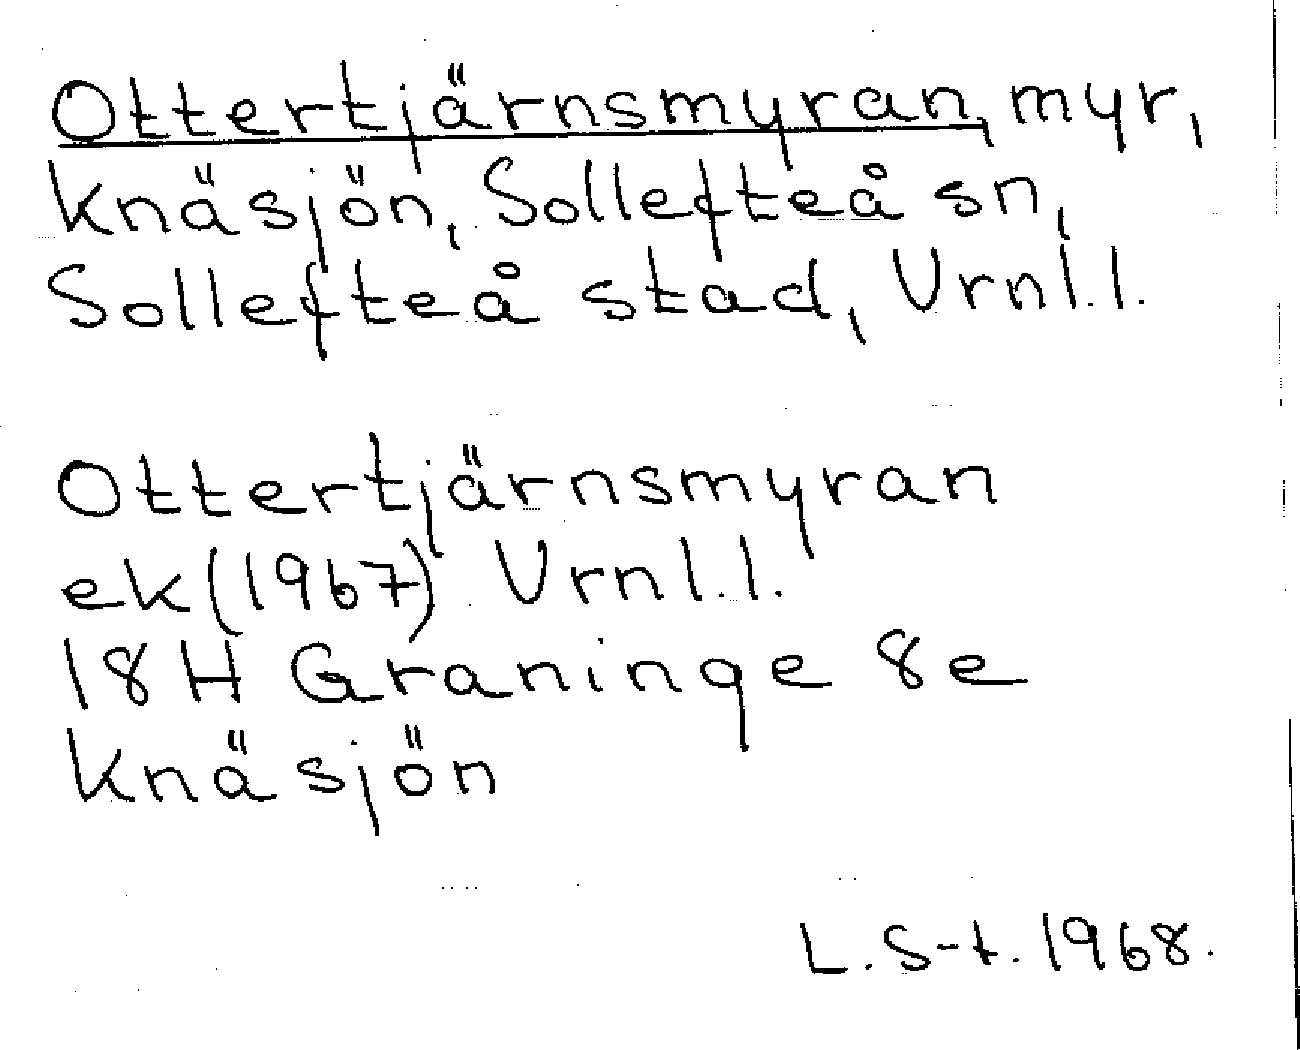 Ottertjärnsmyran, myr,
Knäsjön, Sollefteå sn,
Sollefteå stad, Vrnl.l.
Ottertjärnsmyran
ek (1967) Vrnl.l.
18H Graninge 8e
Knäsjön
L. S-t. 1968.